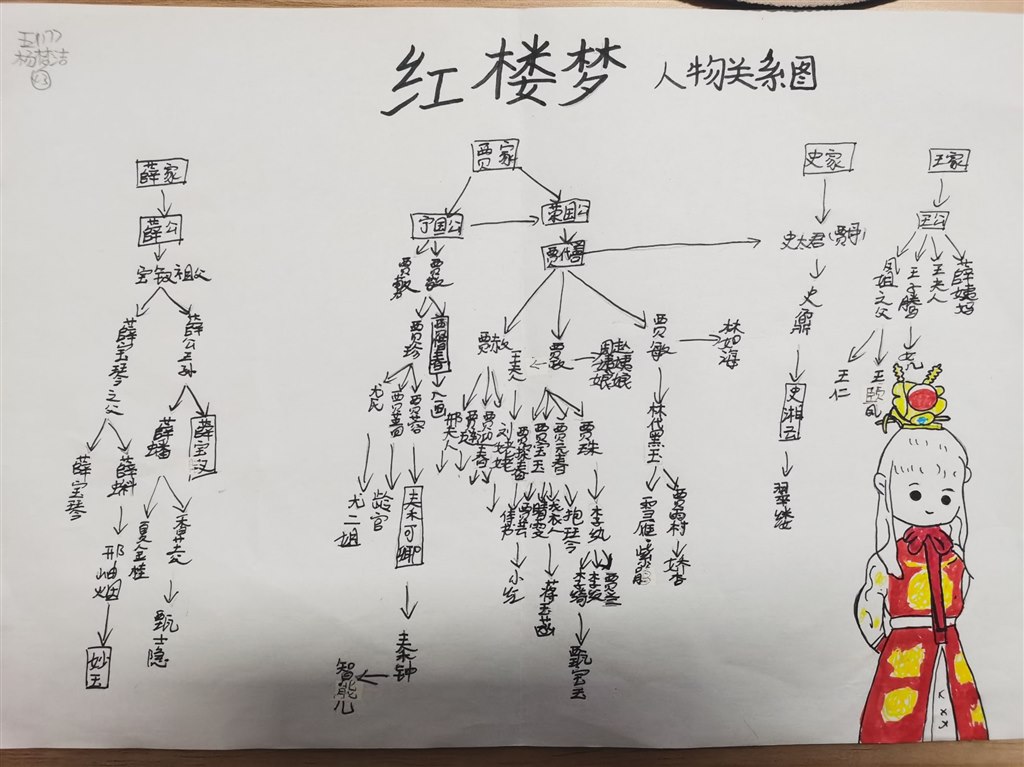 五(17)
杨梦洁
红楼梦 人物关系图
薛家
薛公
宝钗祖父
薛宝琴之父
薛公王孙
薛宝琴
薛蝌
薛蟠
薛宝汉
邢岫烟
夏金桂
香菱
妙玉
甄士隐
贾家
宁国公
荣国公
贾代善
贾敷
贾敬
贾珍
贾惜春
入画
尤氏
贾蔷
贾蓉
尤二姐
龄官
秦可卿
秦钟
智能儿
贾赦
王夫人
贾政
周姨娘
赵姨娘
贾敏
林如海
邢夫人
贾琏
贾迎春
刘姥姥
贾探春
贾宝玉
贾元春
贾珠
佳蕙
贾芸
晴雯
袭人
抱琴
李纨
小红
蒋玉菡
李绮
李纹
贾兰
甄宝玉
林代黑玉
雪雁
紫鹃
贾雨村
娇杏
史家
史太君(贾母)
史鼐
史湘云
翠缕
王家
王公
凤姐之父
王子腾
王夫人
薛姨妈
王仁
王熙凤